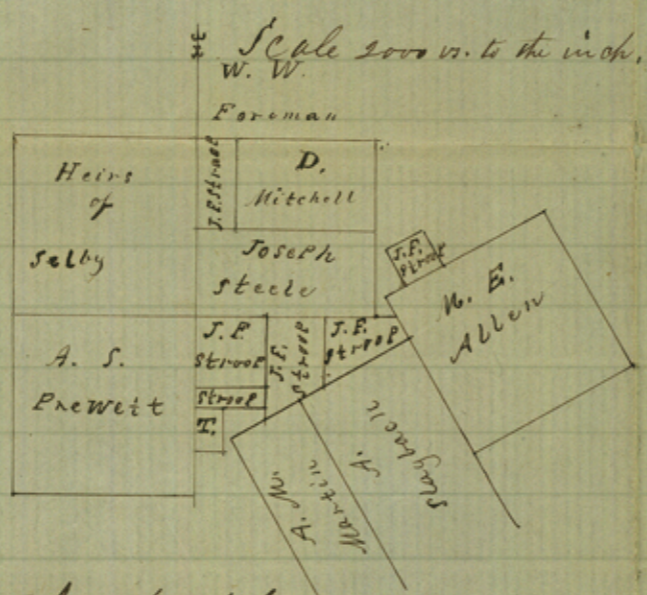 Scale 2000 vs. to the inch.
W. W.
Foreman
Heirs
of
Selby
J.F. Stroop
D.
Mitchell
Joseph
Steele
J.F.
Stroop
M. E.
Allen
A. S.
Prewett
J. F.
Stroop
J.F.
Stroop
J.F.
Stroop
Stroop
T.
A. M.
Martin
A.
Slayback